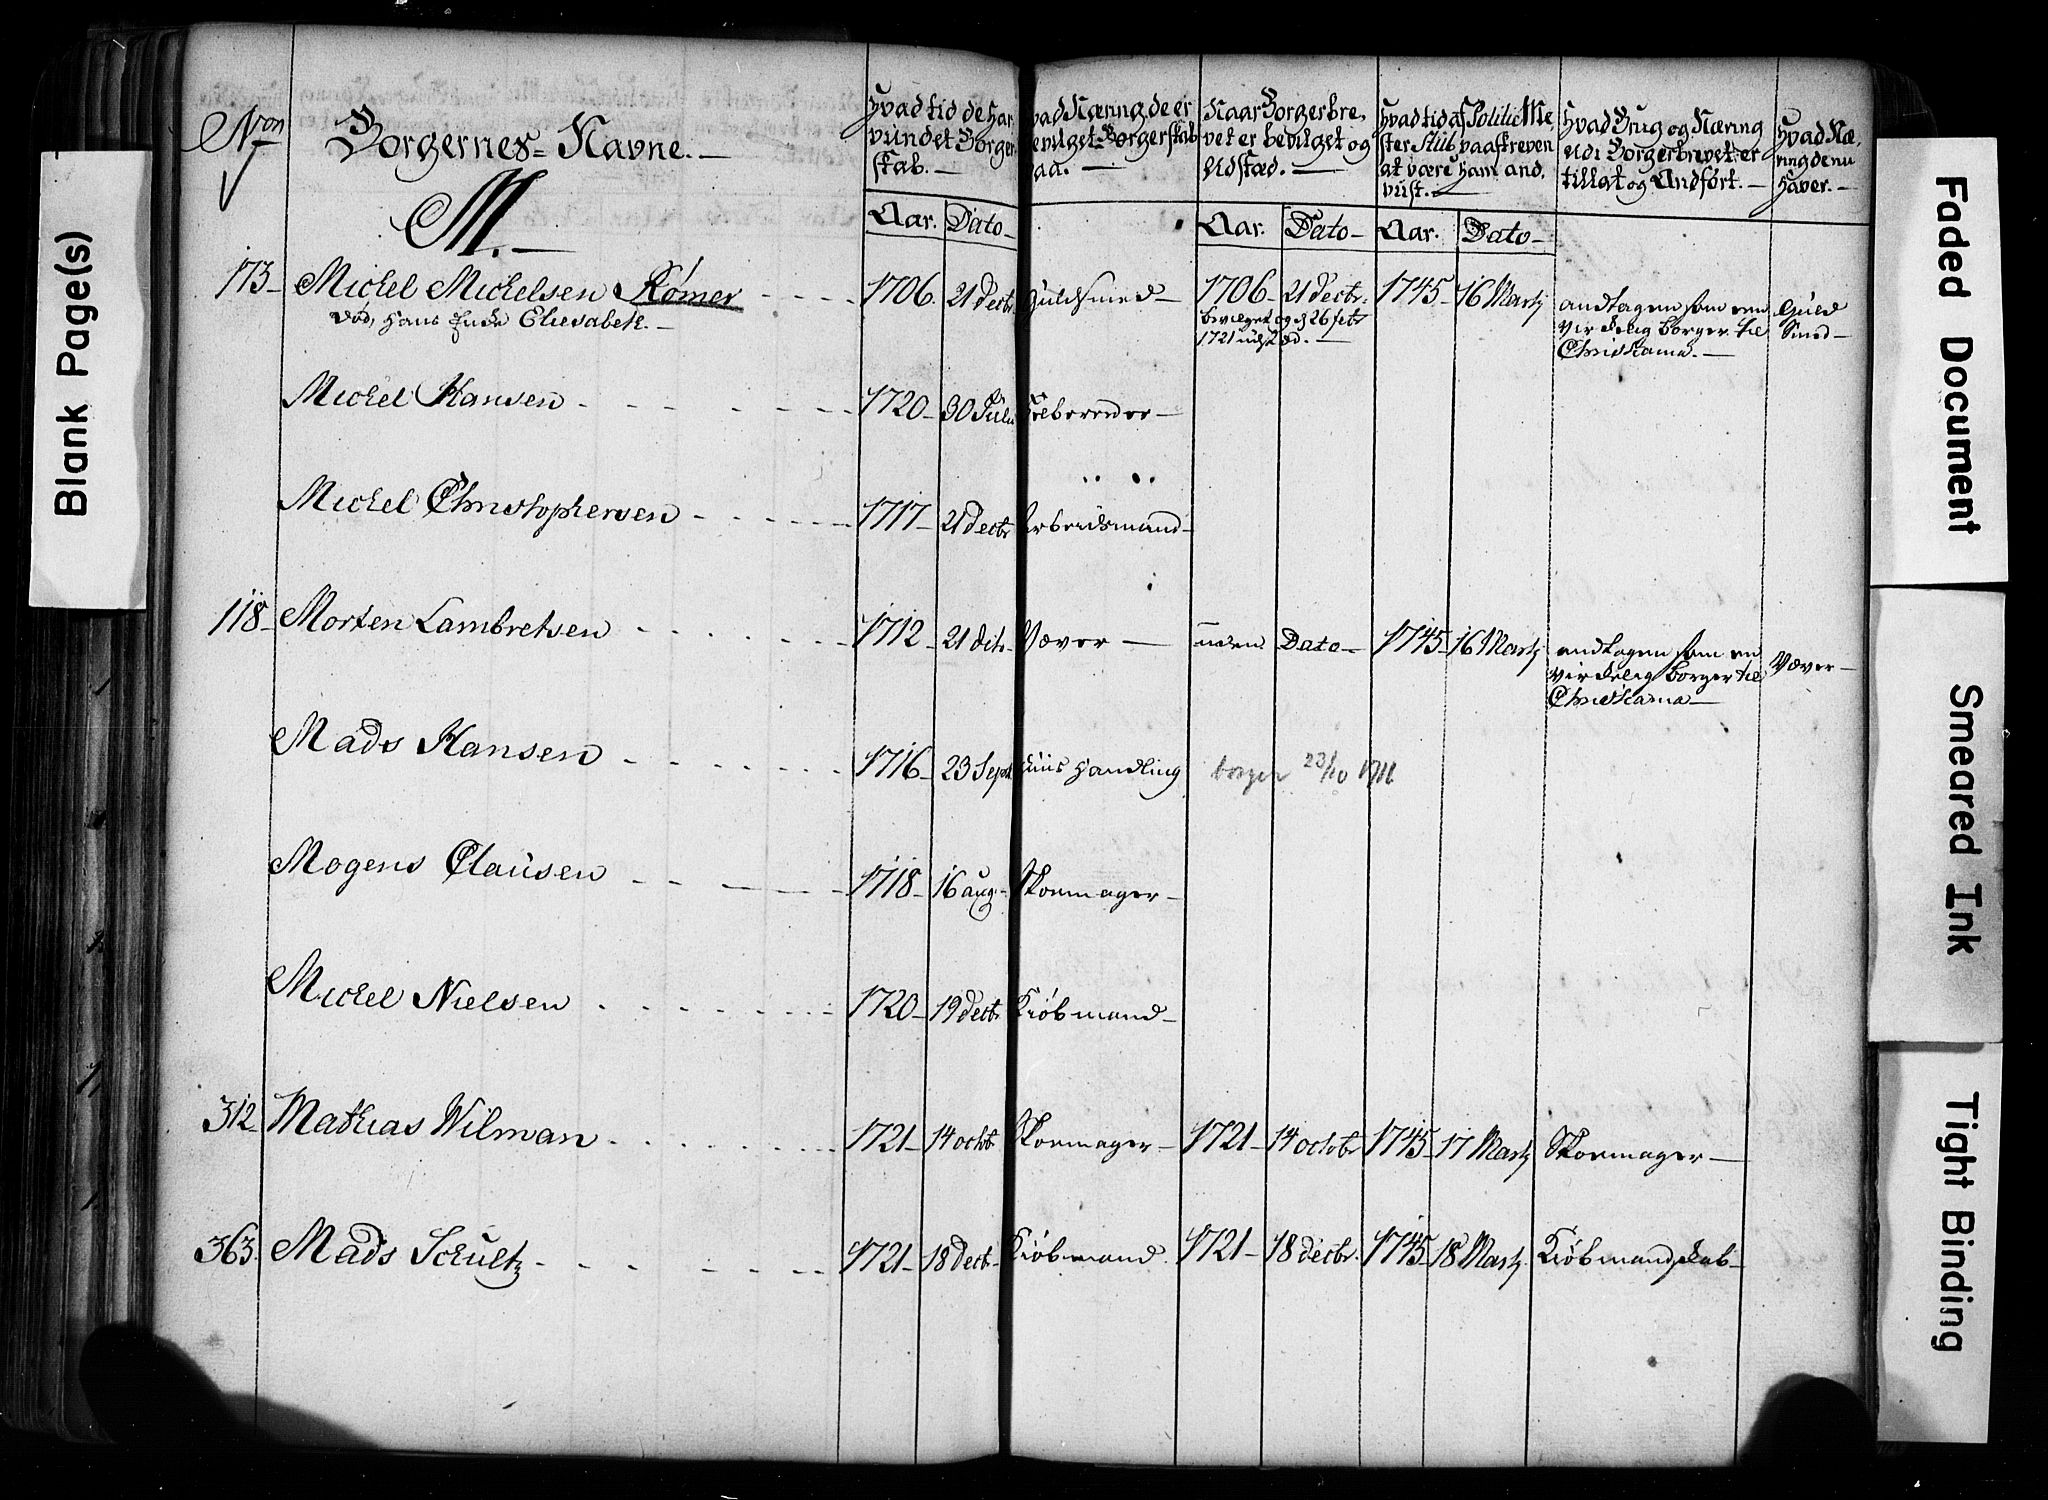 Blank Page(s)
Faded Document
Smeared Ink
Tight Binding
Non
Borgernes= Navne. —
Hvad tid de har vundet Borger skab. —
Aar. Dato
vad Næring de er bevilget Borgerskab paa. —
Naar Borgerbre, vet er bevilget og Udstæd. —
Aar. Dato
Hvad tid af Politie Me, ster Stüb paaskreven at være ham and, viist. —
Aar. Dato
Hvad Brug og Næring Udi Borgerbrevet er tillat og Andført. —
Hvad Næ, ring de nu haver. —
M. —
173 Michel Michelsen Rømer 1706 21 Dectr Guldsmed — 1706 21 Dectr. 1745 16 Martj andtagen som en Guld
død, hans Enke Elisabeth. — bevilget og d 26 febr Borger til Smed —
1721 udstæd. — Christiania. —
Michel Hansen 1720 30 Julii
Michel Christophersen 1717 21 Dectr Arbeidsmand —
118 Morten Lambretsen 1712 21 dito Væver — uden Dato 1745 16 Martj andtagen som en Væver —
Borger til
Christiania —
Mads Hansen 1716 23 Sept Handling borger 23/10 1716
Mogens Clausen 1718 16 aug. Skoemager —
Michel Nielsen 1720 19 dectr Kiøbmand —
312 Mathias Wilman 1721 14 octob Skoemager — 1721 14 octobr 1745 17 Martj Skoemager —
363. Mads Schultz 1721 18 Dectr Kiøbmand. 1721 18 decbr. 1745 18 Martj Kiøbmandskab —